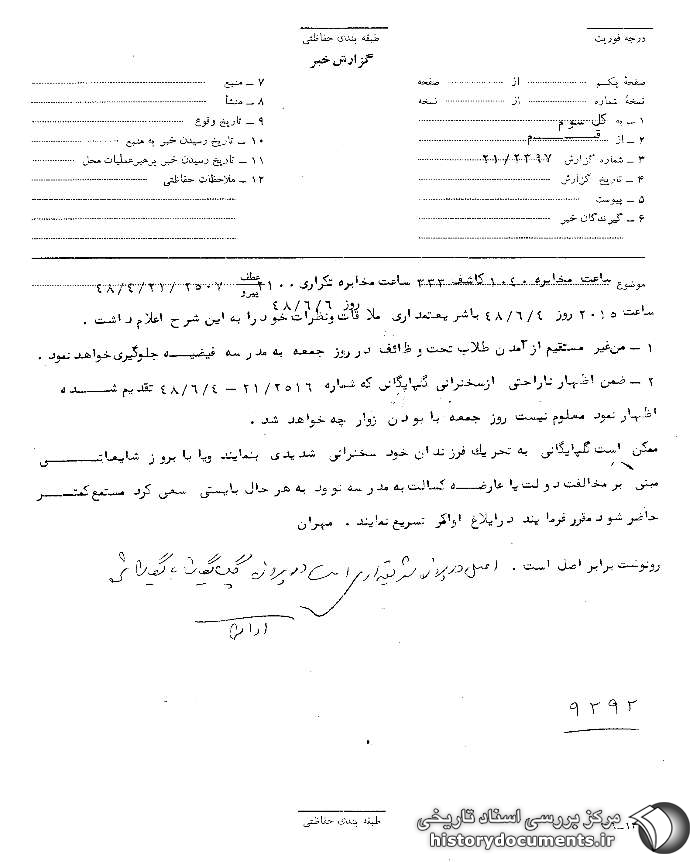 درجه فوریت
طبقه بندی حفاظتی
گزارش خبر
صفحهٔ یکم از صفحه
نسخهٔ شماره از نسخه
۱ ـ به کل سوم
۲ ـ از قـــم
۳ ـ شماره گزارش ۲۱/۲۴۹۷
۴ ـ تاریخ گزارش
۵ ـ پیوست
۶ ـ گیرندگان خبر
۷ ـ منبع
۸ ـ منشأ
۹ ـ تاریخ وقوع
۱۰ ـ تاریخ رسیدن خبر به منبع
۱۱ ـ تاریخ رسیدن خبر برهبر عملیات محل
۱۲ ـ ملاحظات حفاظتی
موضوع ساعت مخابره ۱۰۴۰ کاشف ۳۳۳ ساعت مخابره تکراری ۲۱۰۰ عطف پیرو ۲۵۰۷
روز ۴۸/۶/۶
ساعت ۲۰۱۵ روز ۴۸/۶/۴ باشریعتمداری ملاقات ونظرات خود را به این شرح اعلام داشت .
۱ ـ من غیر مستقیم از آمدن طلاب تحت وظائف در روز جمعه به مدرسه فیضیه جلوگیری خواهد نمود .
۲ ـ ضمن اظهار ناراحتی ازسخنرانی گلپایگانی که شماره ۲۱/۲۵۱۶ - ۴۸/۶/۴ تقدیم شده
اظهار نمود معلوم نیست روز جمعه با بودن زوار چه خواهد شد .
ممکن است گلپایگانی به تحریك فرزندان خود سخنرانی شدیدی بنمایند ویا با بروز شایعاتــی
مبنی بر مخالفت دولت یا عارضه کسالت به مدرسه نرود به هر حال بایستی سعی کرد مستمع کمتر
حاضر شود مقرر فرمایند درابلاغ اوامر تسریع نمایند . مهران
رونوشت برابر اصل است . اصل در پرونده شریعتمداری است در پرونده گلپایگانی بایگانی
۹۲۹۲
طبقه بندی حفاظتی
مرکز بررسی اسناد تاریخی
historydocuments.ir